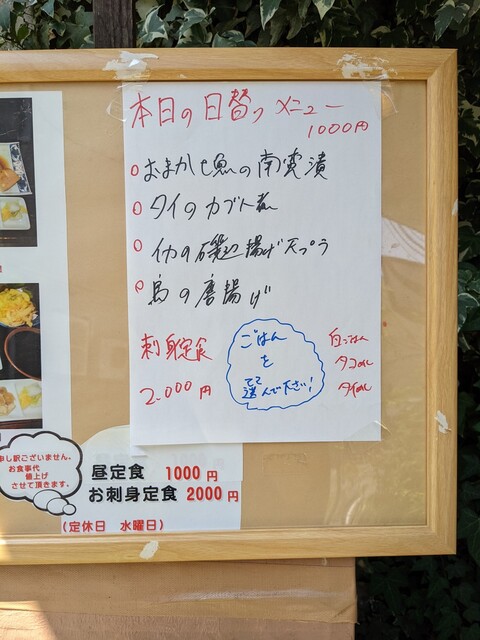 本日の日替りメニュー
1000円
○おまかせ魚の南蛮漬
○タイのカブト煮
○イカの磯辺揚げ天プラ
○鳥の唐揚げ
刺身定食
2.000円
ごはん
を
選んで下さい!
白ごはん
タコめし
タイめし
申し訳ございません。
お食事代
値上げ
させて頂きます。
昼定食 1000円
お刺身定食 2000円
(定休日 水曜日)